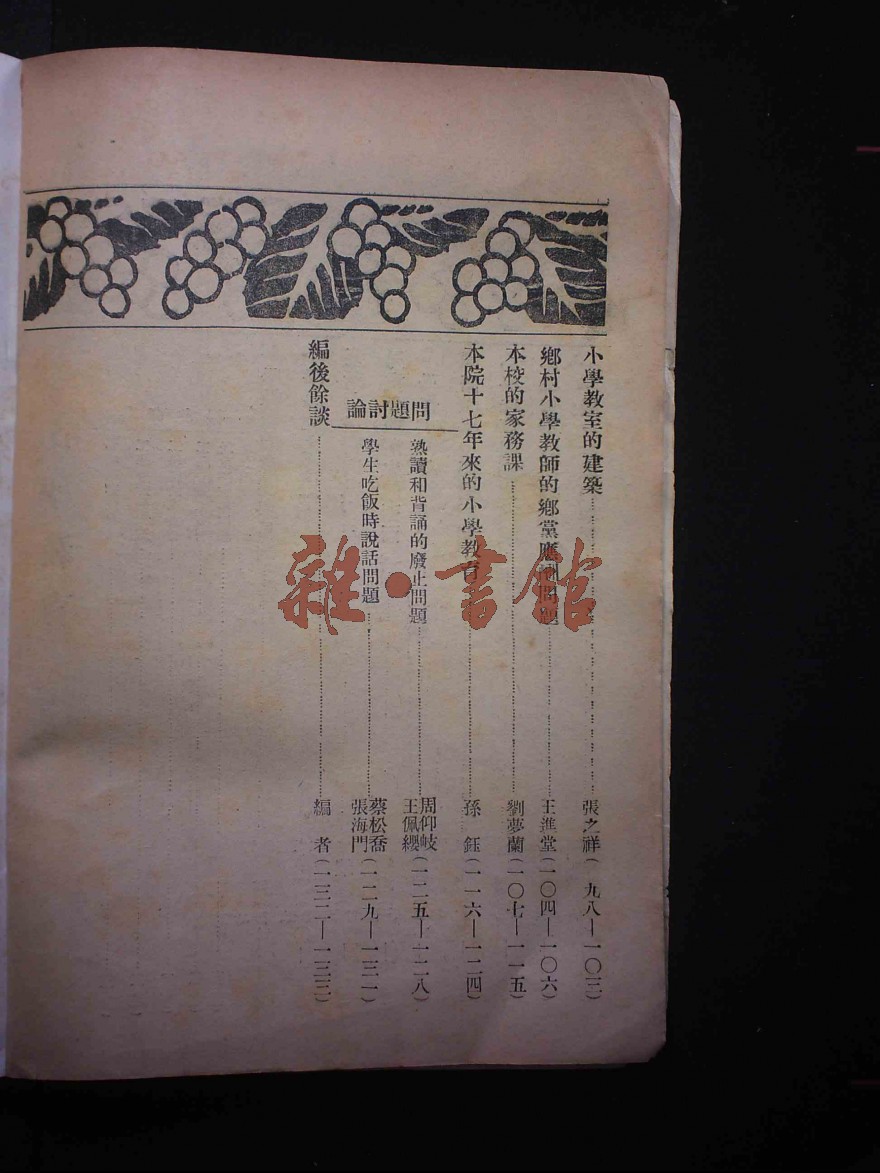 小學教室的建築 張之祥(九八—一〇三)
鄉村小學教師的鄉黨應 問題 王進堂(一〇四—一〇六)
本校的家務課 劉夢蘭(一〇七—一一五)
本院十七年來的小學教育 孫鈺(一一六—一二四)
問題討論
熟讀和背誦的廢止問題 周仰岐 王佩纓(一二五—一二八)
學生吃飯時說話問題 蔡松喬 張海門(一二九—一三一)
編後餘談 編者(一三二—一三三)
雜·書館